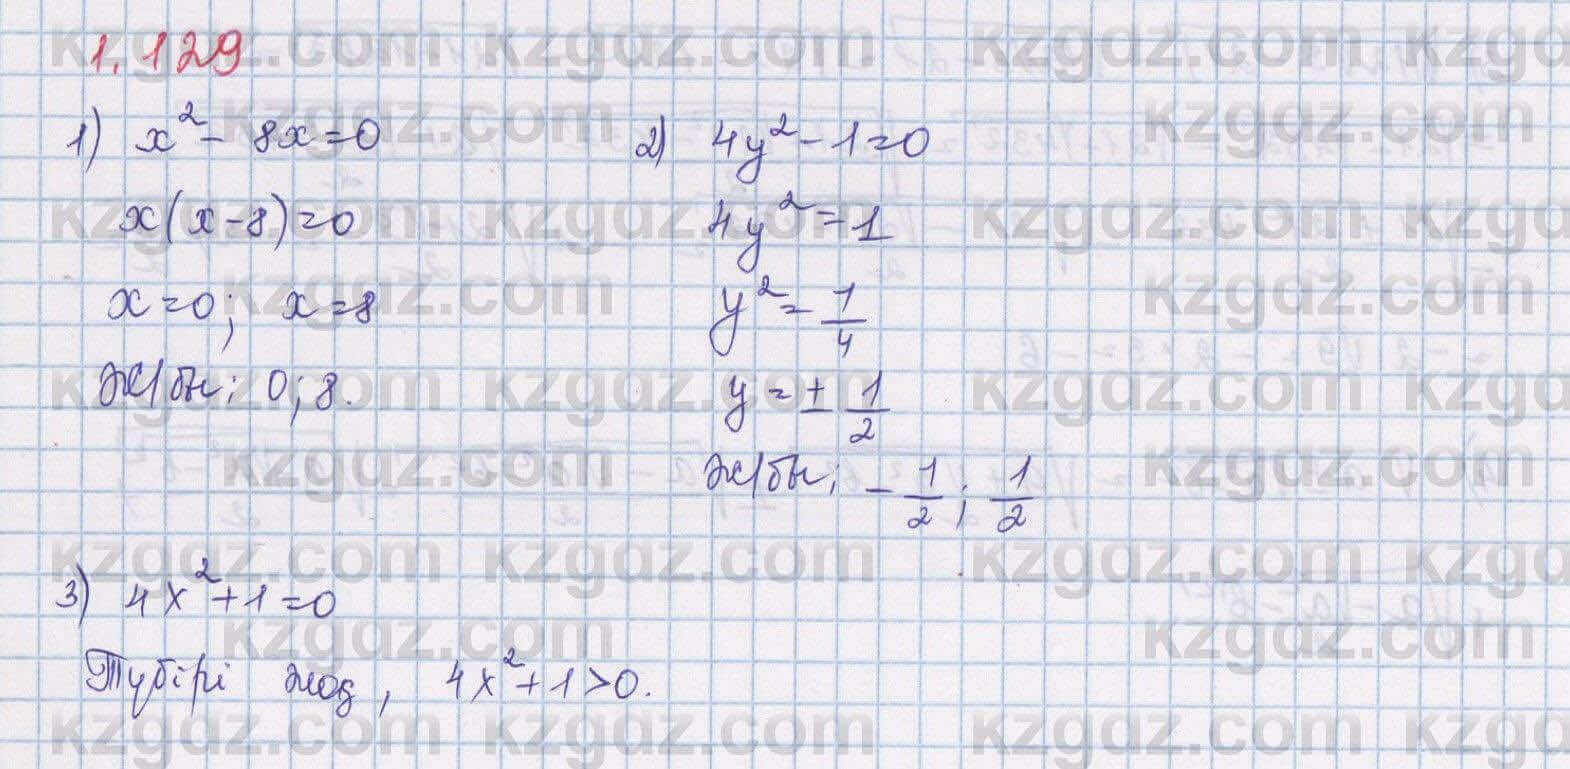 1.129
1) x² - 8x = 0
x(x - 8) = 0
x = 0; x = 8
Ж/бы: 0; 8.
2) 4y² - 1 = 0
4y² = 1
y² = 1/4
y = ± 1/2
Ж/бы: - 1/2; 1/2
3) 4x² + 1 = 0
Түбірі жоқ, 4x² + 1 > 0.
kzgdz.com